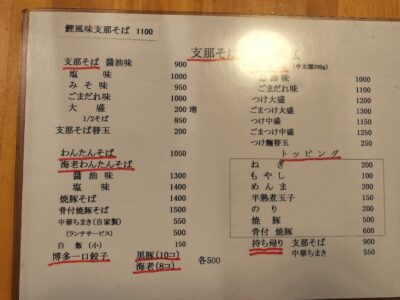 鰹風味支那そば 1100
支那そば 醤油味 900
塩味 1000
みそ味 1000
ごまだれ味 1000
大盛 200 増
1/2そば 850
支那そば替玉 200
わんたんそば 1050
海老わんたんそば
醤油味 1300
塩味 1400
焼豚そば 1400
骨付焼豚そば 1500
中華ちまき(自家製) 550
(ランチサービス) 500
白飯(小) 150
博多一口餃子 黒豚(10コ)
海老(8コ) 各500
支那そば
(中太麺200g)
味 1000
ごまだれ味 1100
つけ大盛 1200
ごまつけ大盛 1300
つけ中盛 1150
ごまつけ中盛 1250
つけ麺替玉 250
トッピング
ねぎ 200
もやし 100
めんま 200
半熟煮玉子 150
のり 200
焼豚 500
骨付焼豚 600
持ち帰り 支那そば 900
中華ちまき 550